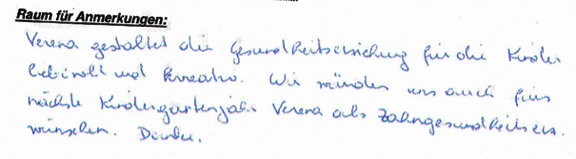 Raum für Anmerkungen:
Verena gestaltet die Gesundheitserziehung für die Kinder
liebevoll und kreativ. Wir würden uns auch fürs
nächste Kindergartenjahr Verena als Zahngesundheitserz.
wünschen. Danke.